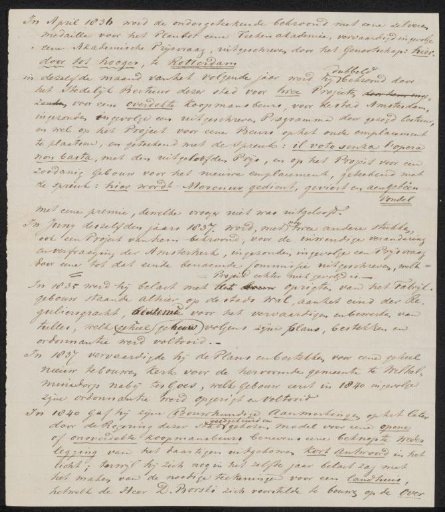 In April 1836 werd de ondergeteekende bekroond met eene zilveren
medaille voor het Plan tot eene Teeken akademie, vervaardigd ingevolge
eene Akademische Prijsvraag, uitgeschreven door het Genootschap: hier
door tot hooger, te Rotterdam
in dezelfde maand van het volgende jaar werd hij dubbeld bekroond door
het Stedelijk Bestuur dezer stad voor twee Projecten,
voor een overdekte koopmansbeurs, voor de stad Amsterdam,
ingezonden ingevolge een uitgeschreven Programma door gezegd bestuur,
en wel op het Project voor eene Beurs op het oude emplacement
te plaatsen, en geteekend met de Spreuk: il voto senza l'opera
non basta, met den uitgeloofden Prijs, en op het Project voor een
zoodanig gebouw voor het nieuwe emplacement, geteekend met
de spreuk: hier wordt Mercurius gediend, gevierd en aengebeên
Vondel
met eene premie, dewelke vroeger niet was uitgeloofd.
In Junij deszelfden jaars 1837 werd, met twee andere stukken,
ook een Project van hem bekroond, voor de inwendige verandering
der Amsterkerk, ingezonden ingevolge een Prijsvraag
door eene tot dat einde benoemde Commissie uitgeschreven, welk
Project echter niet gevolgd is
In 1835 werd hij belast met het oprigten van het Fabrijk-
gebouw staande alhier, op de stads wal, aan het eind der Re-
guliersgracht, bestemd voor het vervaardigen en bewerken van
welk geheel gebouw volgens zijne plans, bestekken en
ordonnantie werd voltooid.
In 1837 vervaardigde hij de Plans en bestekken, voor eene geheel
nieuw te bouwen kerk voor de hervormde gemeente te Wilhel-
minadorp nabij ter Goes, welk gebouw eerst in 1840 ingevolge
zijne ordonnantie werd opgerigt en voltooid.
In 1840 gaf hij zijne Bouwkundige Aanmerkingen op het laten
door de Regering dezer stad vervaardigen model voor eene opene
of onoverdekte koopmansbeurs benevens eene beknopte weder-
legging van het daartegen uitgekomen kort Antwoord in het
licht; terwijl hij zich nog in het zelfde jaar belast zag met
het maken van de noodige teekeningen voor een Landhuis,
hetwelk de Heer D. Borski zich voorstelde te bouwen op de Over